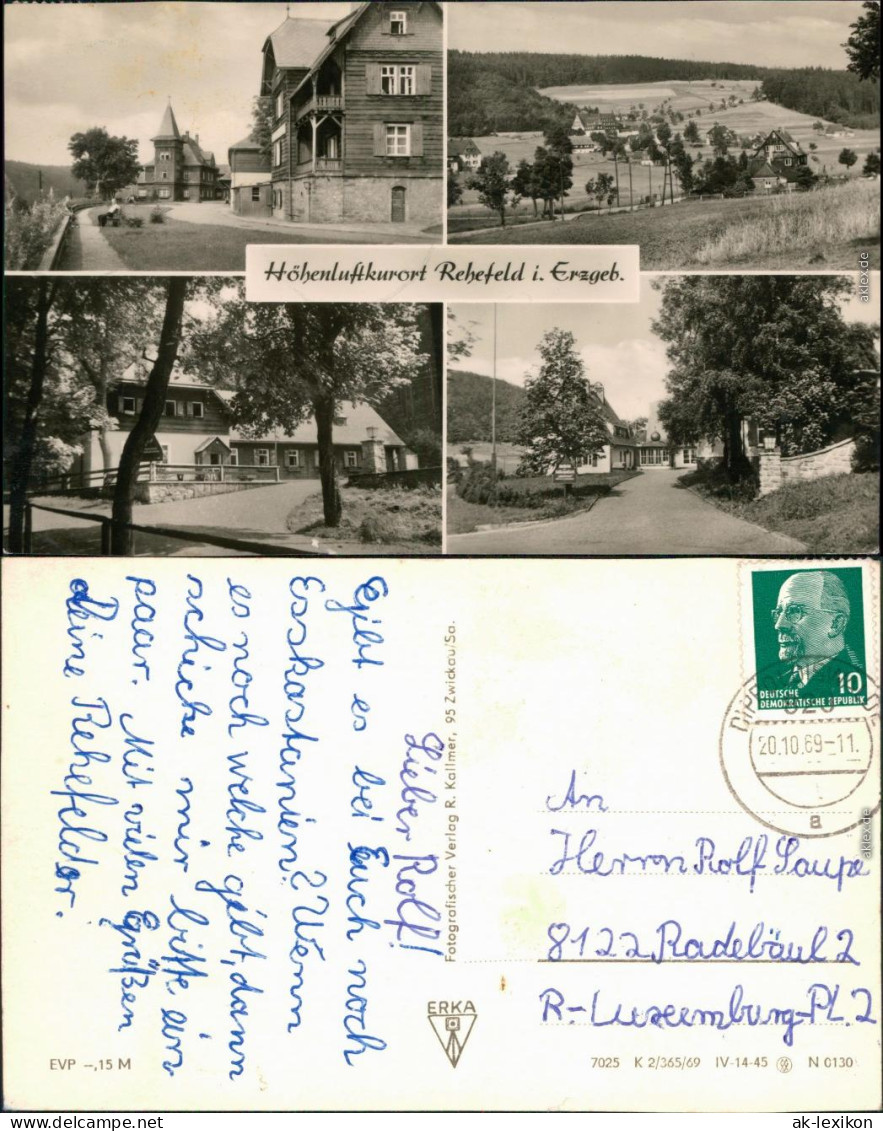 Höhenluftkurort Rehefeld i. Erzgeb.
aklex.de
Lieber Rolf!
Gibt es bei Euch noch
Esskastanien? Wenn
es noch welche gibt, dann
schicke mir bitte ein
paar. Mit vielen Grüßen
deine Rehefelder.
Fotografischer Verlag R. Kallmer, 95 Zwickau/Sa.
ERKA
EVP –,15 M
DEUTSCHE
DEMOKRATISCHE REPUBLIK
10
20.10.69-11.
a
An
Herrn Rolf Saupe
8122 Radebäul 2
R-Luxemburg-Pl. 2
7025 K 2/365/69 IV-14-45 N 0130
aklex.de
ak-lexikon